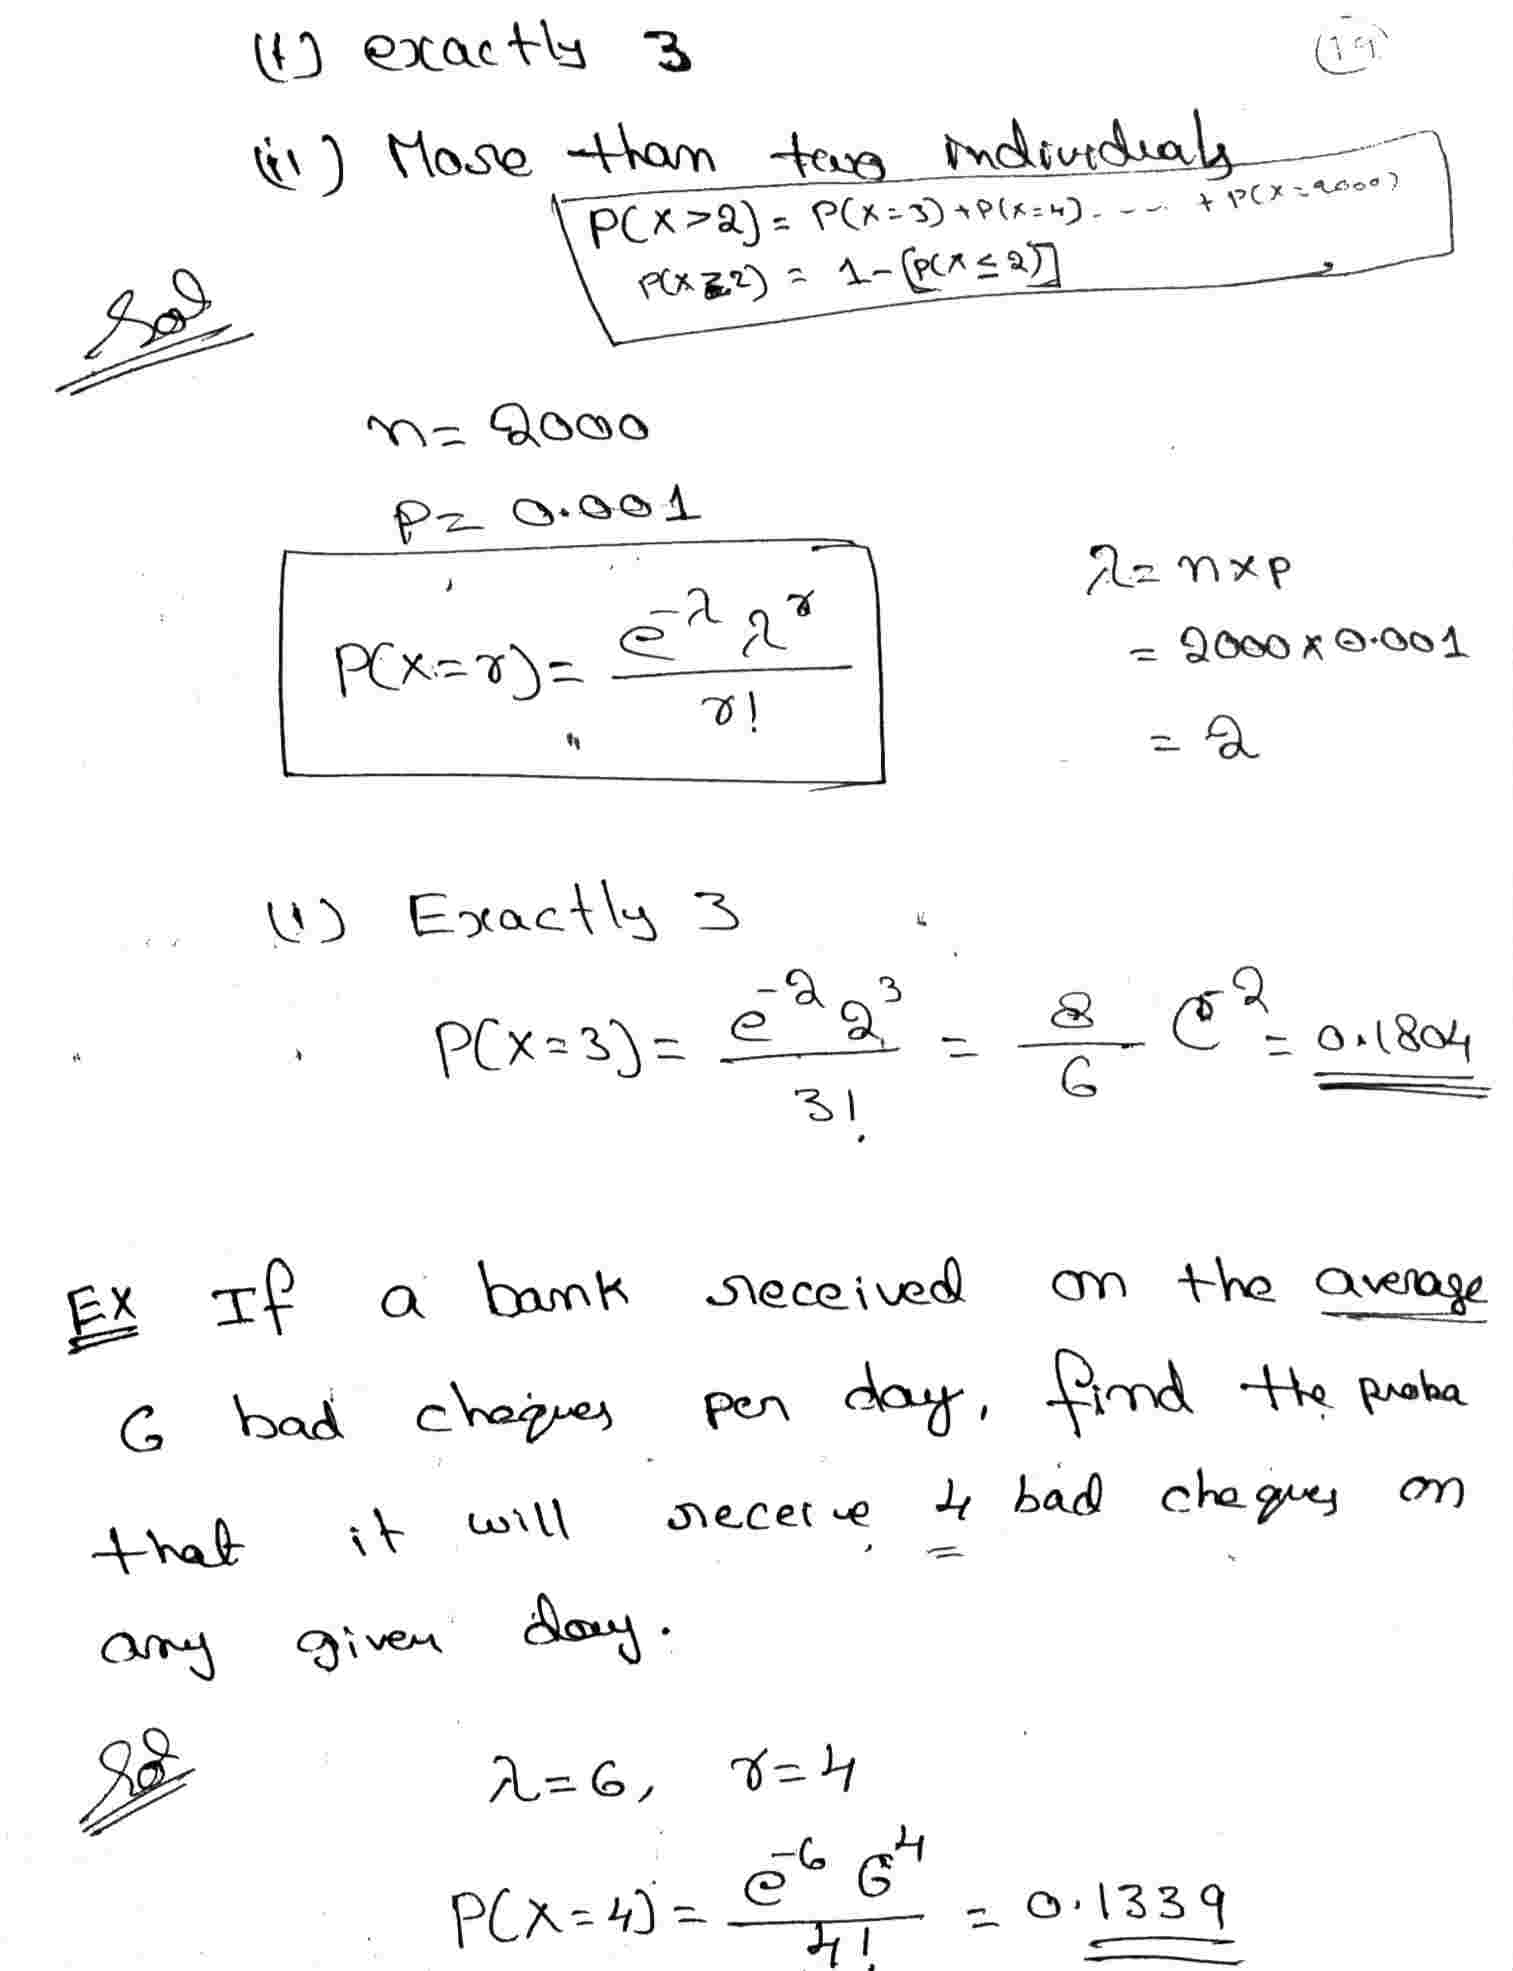 (i) exactly 3
(19)
(ii) More than two individuals
P(X>2) = P(X=3) + P(X=4) - - - - + P(X=2000)
P(X≥2) = 1 - [P(X≤2)]
Sol
n = 2000
P = 0.001
λ = n×p
P(X=r) = e^-λ λ^r / r!
= 2000 × 0.001
= 2
(i) Exactly 3
P(X=3) = e^-2 2^3 / 3! = 8/6 e^-2 = 0.1804
EX If a bank received on the average
6 bad cheques per day, find the proba
that it will receive 4 bad cheques on
any given day.
Sol
λ=6, r=4
P(X=4) = e^-6 6^4 / 4! = 0.1339